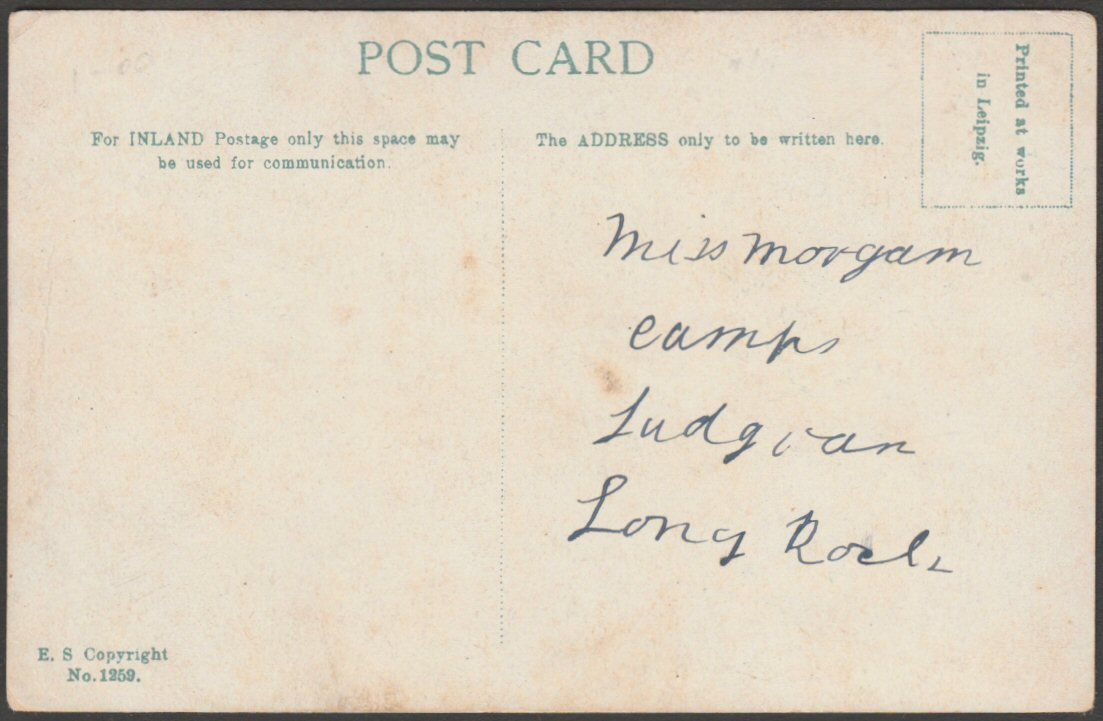 POST CARD
For INLAND Postage only this space may
be used for communication.
The ADDRESS only to be written here.
Printed at works
in Leipzig.
Miss Morgam
Camps
Ludgvan
Long Rock
E. S Copyright
No. 1259.